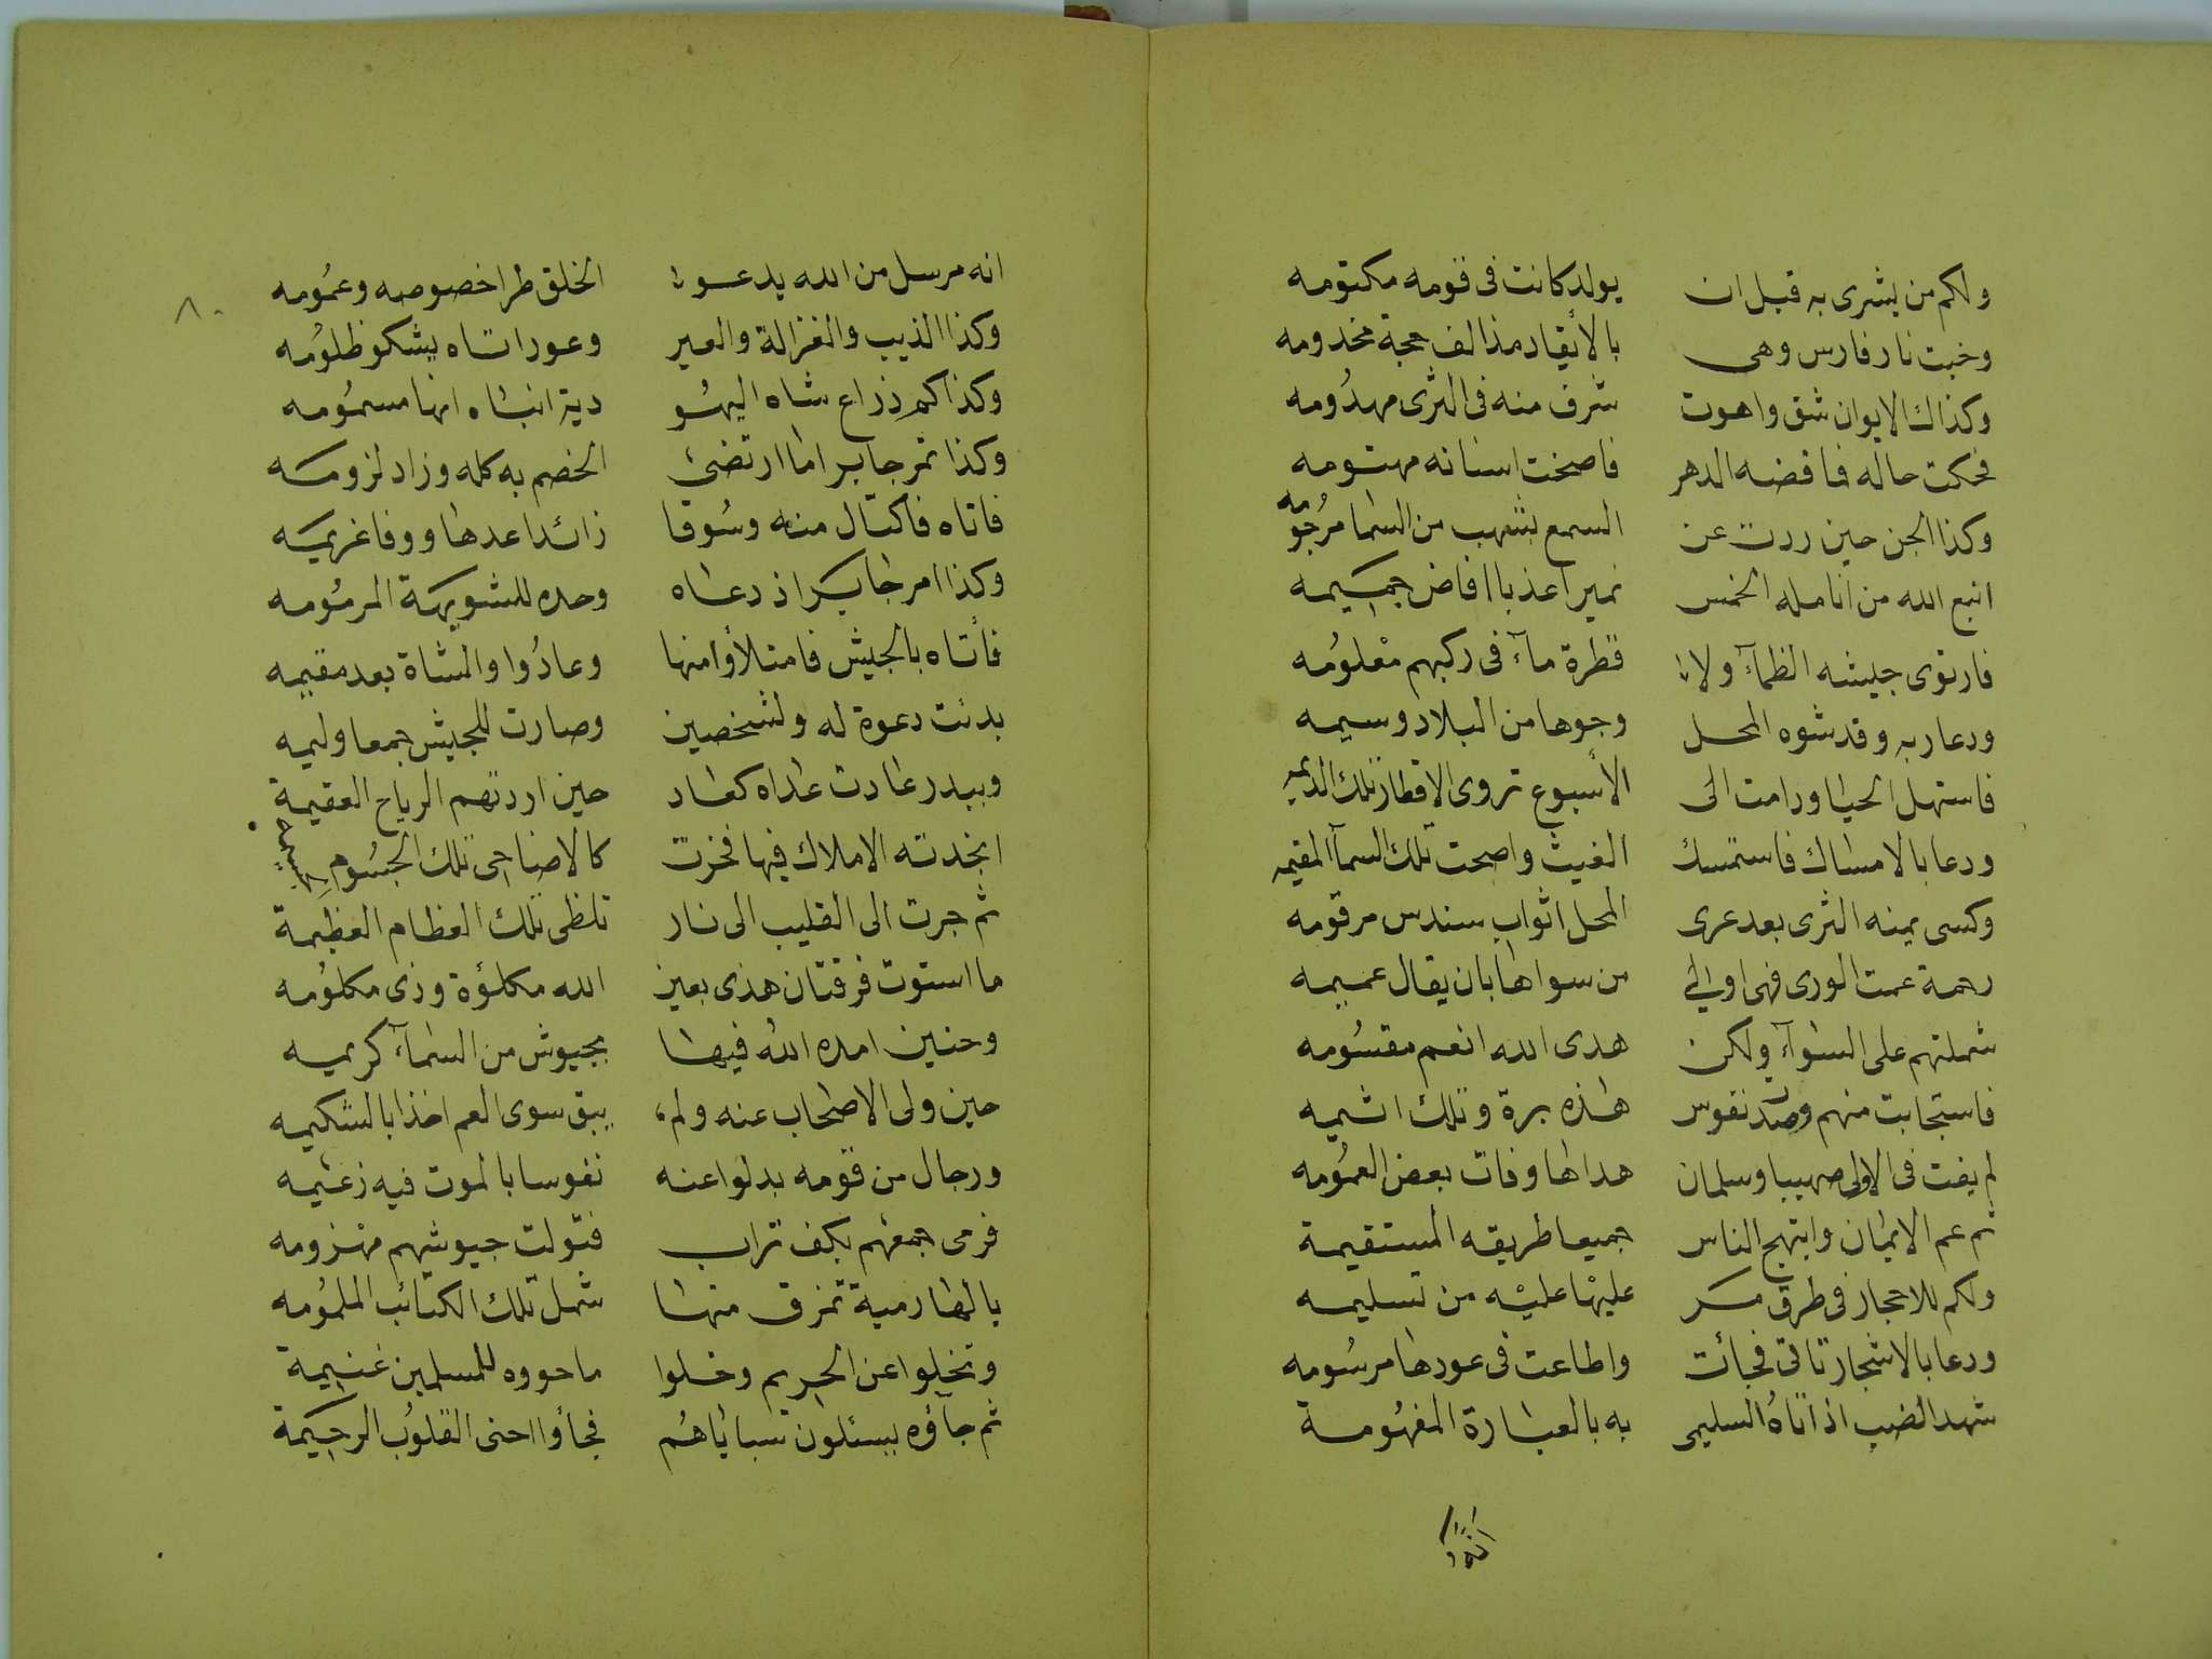 ولكم من بشرى به قبل ان يولد كانت فى قومه مكتومه
وخبت نار فارس وهى بالأيقاد مذ الف حجة مخدومه
وكذاك الايوان شق واهوت شرف منه فى الثرى مهدُومه
فحكت حاله فافضه الدهر فاصخت اسنانه مهتومه
وكذا الجن حين ردت عن السمع بشهب من السما مرجُومه
انبع الله من انامله الخمس نميرا عذبا افاض جميمه
فارتوى جيشه الظمآء ولا قطرة مآء فى ركبهم معْلومُه
ودعا ربه وقد شوه المحل وجوها من البلاد وسيمه
فاستهل الحيا ودامت الى الأسبوع تروى الاقطار تلك الديمه
ودعا بالامساك فاستمسك الغيث واصحت تلك السمآ المقيمه
وكسى يمنه الثرى بعد عرى المحل اثواب سندس مرقومه
رحمة عمت الورى فهى اولى من سواها بان يقال عميمه
شملتهم على السوآء ولكن هدى الله انعم مقسُومه
فاستجابت منهم وصدت نفوس هذه برة وتلك اثيمه
لم يفت فى الاولى صهيبا وسلمان هداها وفات بعض العمُومه
ثم عم الايمان وابتهج الناس جميعا طريقه المستقيمة
ولكم للاحجار فى طرق مر عليهْا عليْه من تسليمه
ودعا بالاشجار تاتى فجائت واطاعت فى عودها مرسُومه
شهد الضب اذ اتاهُ السليمى به بالعبارة المفهُومة
انه
٨٠
انه مرسل من الله يدعو الخلق طرا خصوصه وعمُومه
وكذا الذيب والغزالة والعير وعود اتاه يشكو ظلومُه
وكذاكم ذراع شاه اليهُو دية انباه انها مسمُومه
وكذا تمر جابر اما ارتضى الخصم به كله وزاد لزومه
فاتاه فاكتال منه وسُوقا زائدا عدها ووفا غريمه
وكذا امر جابر اذ دعاه وحده للشويهة المرمُومه
فأتاه بالجيش فامتلأوا منها وعادُوا والشاة بعد مقيمه
بدئت دعوة له ولشخصين وصارت للجيش جمعا وليمه
وببدر عادت عداه كعاد حين اردتهم الرياح العقيمة
انجدته الاملاك فيها فخرت كالاضاحى تلك الجسُوم الجسيمة
ثم جرت الى القليب الى نار تلظى تلك العظام العظيمة
ما استوت فرقتان هذى بعين الله مكلؤة وذى مكلومُه
وحنين امده اللهُ فيها بجيوش من السمآء كريمه
حين ولى الاصحاب عنه ولم يبق سوى العم اخذا بالشكيمه
ورجال من قومه بذلوا عنه نفوسا بالموت فيه زعيمه
فرمى جمعهم بكف تراب فتولت جيوشهم مهزومه
يالها رمية تمزق منها شمل تلك الكتائب الملمُومه
وتخلوا عن الحريم وخلوا ما حووه للمسلمين غنيمة
ثم جآؤه يسئلون سباياهُم فجأوا احنى القلوُب الرحيمة